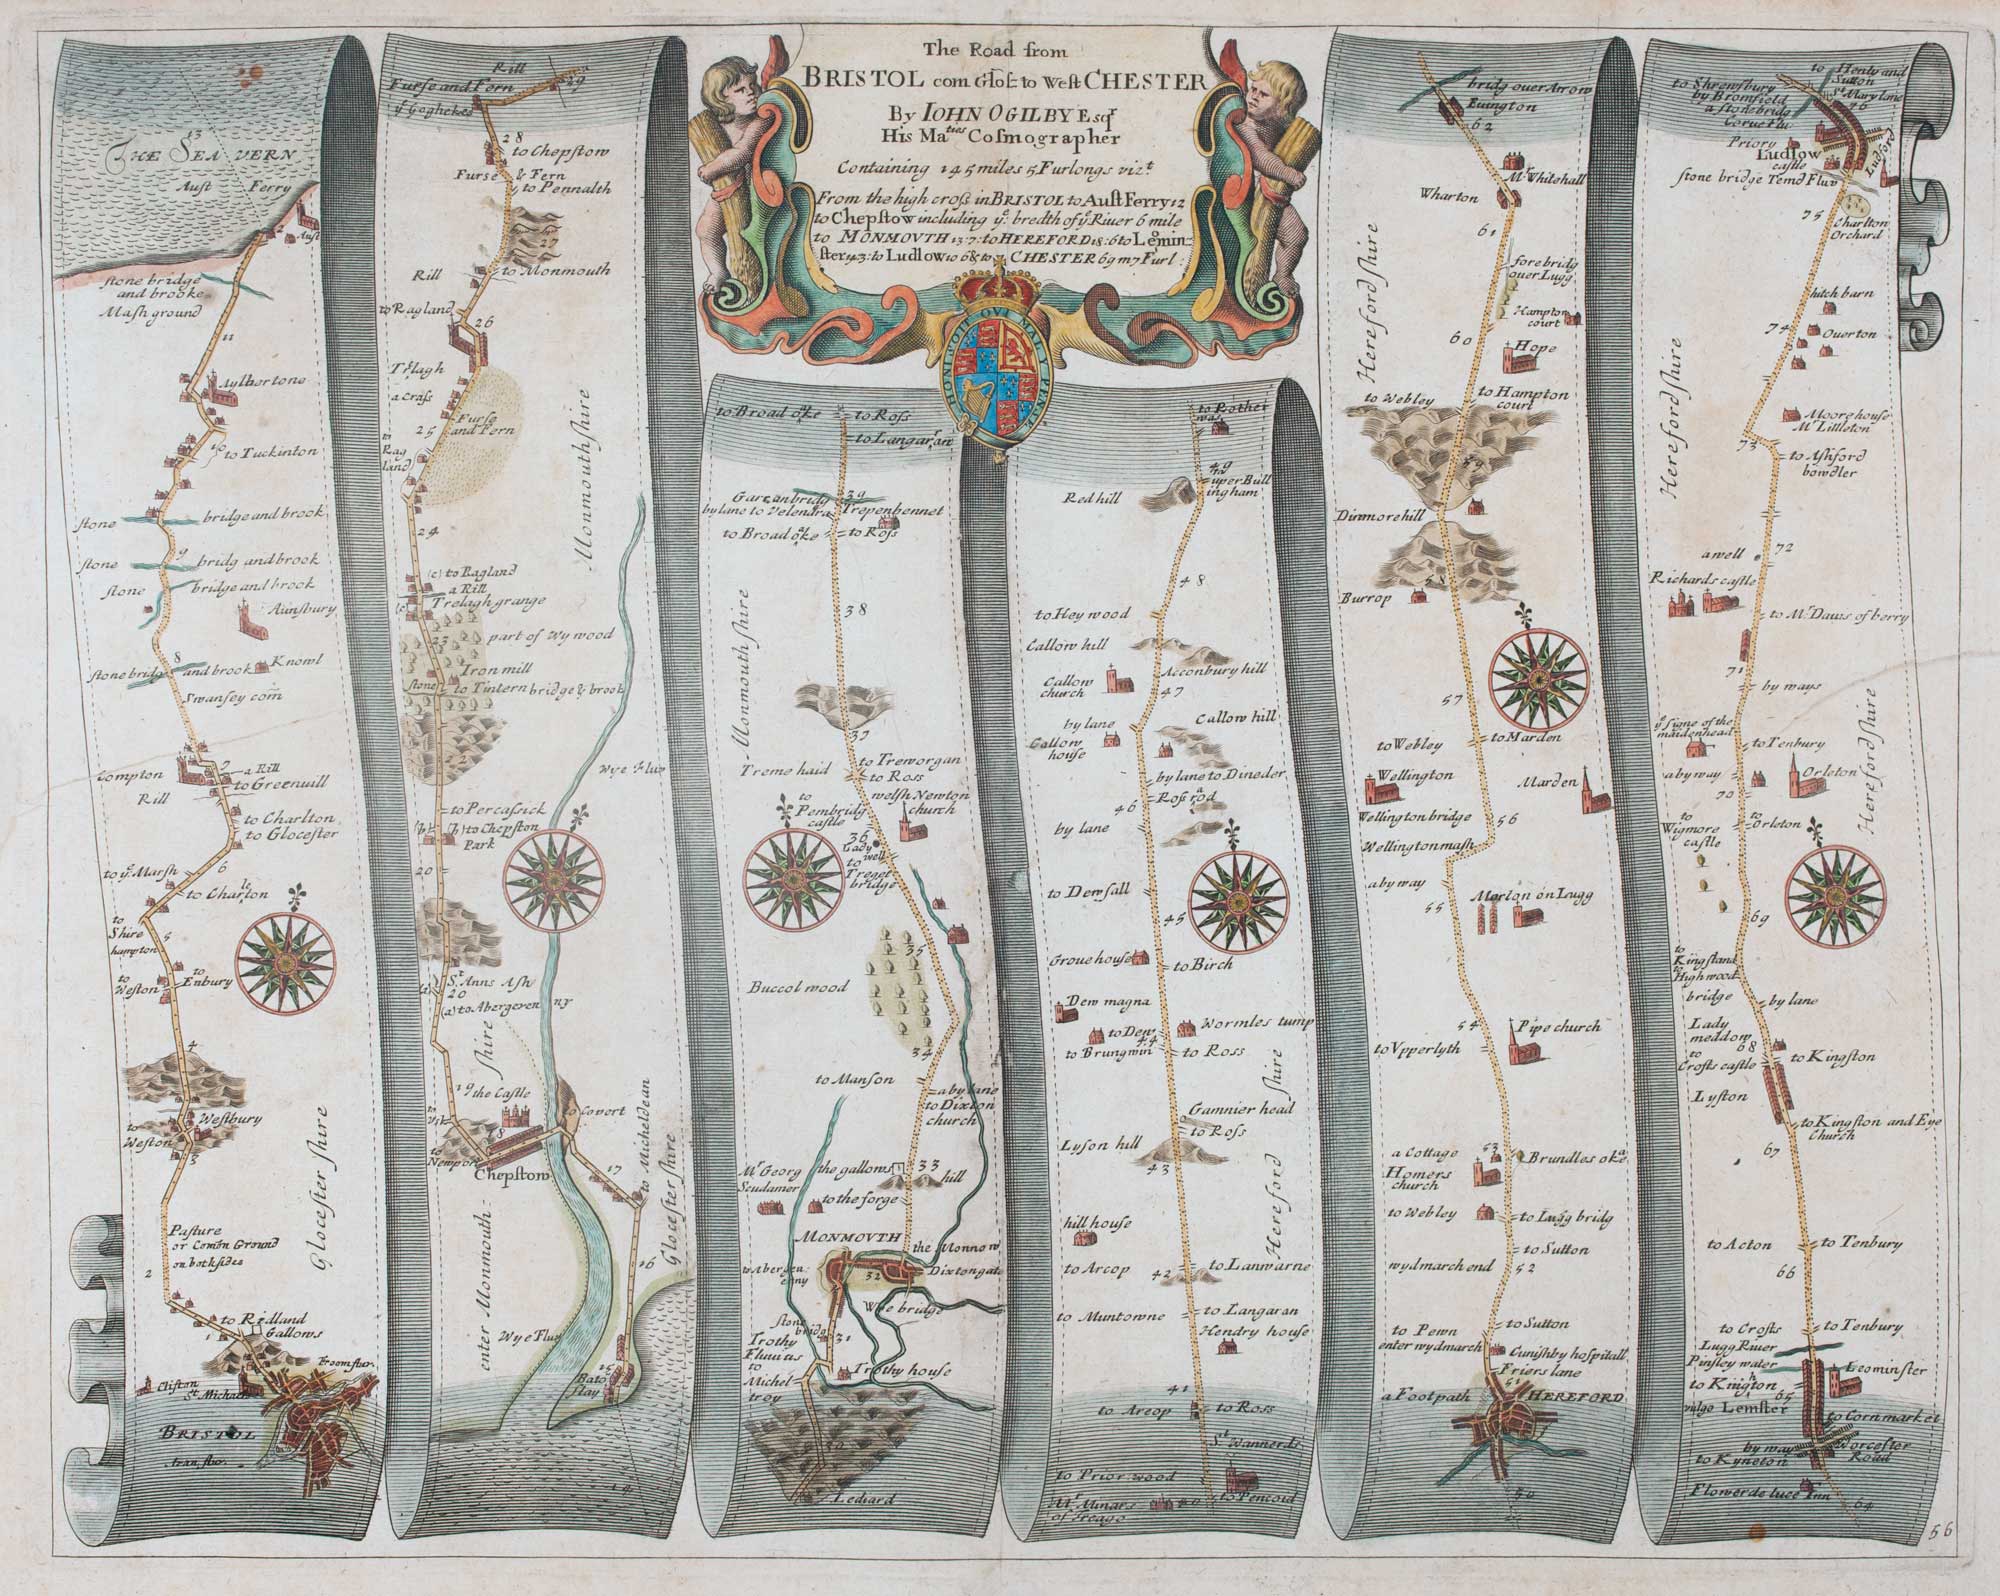 The Road from
BRISTOL com Glo to West CHESTER
By IOHN OGILBY Esqr
His Maties Cosmographer
Containing 145 miles 5 Furlongs vizt
From the high cross in BRISTOL to Aust Ferry 12
to Chepstow including ye bredth of ye River 6 mile
to MONMOVTH 13:7: to HEREFORD 18:6 to Lemin
ster 13: to Ludlow 10 6 & to CHESTER 69 m 7 Furl:
HONI SOIT QVI MAL Y PENSE
THE SEAVERN
13
Aust Ferry
12
Aust
stone bridge
and brooke
Mash ground
11
Aylbertone
10
to Tuckinton
stone bridge and brook
9
stone bridg and brook
stone bridge and brook
Ainsbury
8
stone bridg and brook
Knowl
Swansey com
Compton
7
a Rill
Rill
to Greenwill
to Charlton
to Glocester
6
to ye Marsh
to Charleton
to
Shire
hampton
5
to
Weston
to
Enbury
4
Westbury
to
Weston
3
Glocester shire
Pasture
or Comon Ground
on both sides
2
to Ridland
1
Gallows
Froom flur.
Clifton
St Michael
BRISTOL
Rill
29
Furse and Fern
ye Goghekes
28
to Chepstow
Furse & Fern
to Pennalth
27
Rill
to Monmouth
to Ragland
26
Trelagh
a Crass
Furse
and Fern
25
to
Rag
land
Monmouthshire
24
(c) to Ragland
a Rill
(c)
Trelagh grange
23
part of Wy wood
Iron mill
stone
to Tintern
bridge & brook
22
Wye Fluv
to Percassick
(b)
(b) to Chepston
Park
20
St Anns Ash
20
(a)
(a) to Abergevenny
shire
19
the Castle
to Covert
to
Usk
18
to
Newport
Chepstow
17
to Micheldean
Glocester shire
enter Monmouth
16
Wye Fluv
15
Bato
slay
14
to Broad oke
to Ross
to Langaran
Garranbridg
39
by lane to Velendra
Trepenbennet
to Broad oke
to Ross
38
Monmouth shire
37
to Treworgan
Treme haid
to Ross
to
Pembridg
castle
welsh Newton
church
36
Lady
well
to
Treget
bridge
35
Buccol wood
34
to Manson
a by lane
to Dixton
church
Mr Georg
Scudamer
the gallows
33
hill
to the forge
MONMOVTH
the Monnow
to Abergen
enny
32
Dixtongate
Wye bridge
stone
bridg
31
Trothy
Fluvius
to
Michel
troy
Trothy house
30
Lediard
to Rother
was
49
to
uper Bull
ingham
Red hill
48
to Hey wood
Callow hill
Acconbury hill
Callow
church
47
Callow hill
by lane
Gallow
house
by lane to Dineder
46
Ross road
by lane
to Dewsall
45
Grove house
to Birch
Dew magna
to Dew
Wormles tump
44
to Brungwin
to Ross
Gamnier head
to Ross
Lyson hill
43
Hereford shire
hill house
to Arcop
to Lanwarne
42
to Muntowne
to Langaran
Hendry house
41
to Arcop
to Ross
St Wannerds
to Prior wood
to Pencoid
Mr Minars
of Treago
40
bridg over Arrow
Euington
62
Mr Whitehall
Wharton
61
Hereford shire
fore bridg
over Lugg
Hampton
court
60
Hope
to Webley
to Hampton
court
59
Dinmore hill
58
Burrop
57
to Webley
to Marden
Wellington
Marden
Wellington bridge
56
Wellington mash
a by way
55
Morton on Lugg
54
Pipe church
to Vpperlyth
53
a Cottage
Brundles oke
Homers
church
to Webley
to Lugg bridg
to Sutton
wydmarch end
52
to Pewn
to Sutton
enter wydmarch
Cunishby hospitall
Friers lane
51
a Foot path
HEREFORD
50
to Shrewsbury
by Bromfield
a stone bridg
Corve Flu
to Henly and
Sutton
St Mary lane
76
Priory
Ludlow
castle
Ludford
stone bridge Temd Fluv
75
Charlton
Orchard
hitch barn
74
Ouerton
Hereford shire
Moore house
Mr Littleton
73
to Ashford
bowdler
72
a well
Richards castle
to Mr Dauis of berry
71
by ways
ye Signe of the
maidenhead
to Tenbury
a by way
Orleton
70
to
Wigmore
castle
to
Orleton
Hereford shire
69
to
Kingsland
to
High wood
bridge
by lane
Lady
meddow
68
to
Crofts castle
to Kingston
Lyston
to Kingston and Eye
church
67
to Acton
to Tenbury
66
to Crofts
to Tenbury
Lugg River
Pinsley water
Leominster
to Kington
65
vulgo Lemster
to Corn market
by way
Worcester
Road
to Kyneton
Flower de luce Inn
64
56